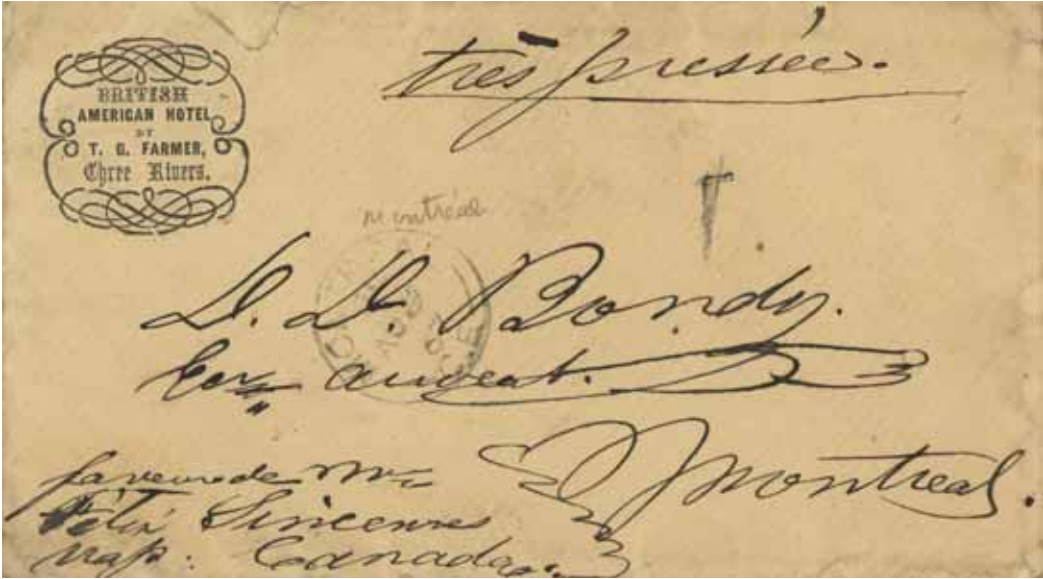 BRITISH
AMERICAN HOTEL
BY
T. G. FARMER,
Three Rivers.
très pressée.
montréal
D. D. Bondy.
Ecr. avocat.
Montreal.
faveur de Mr
Félix Sincennes
vap: Canada